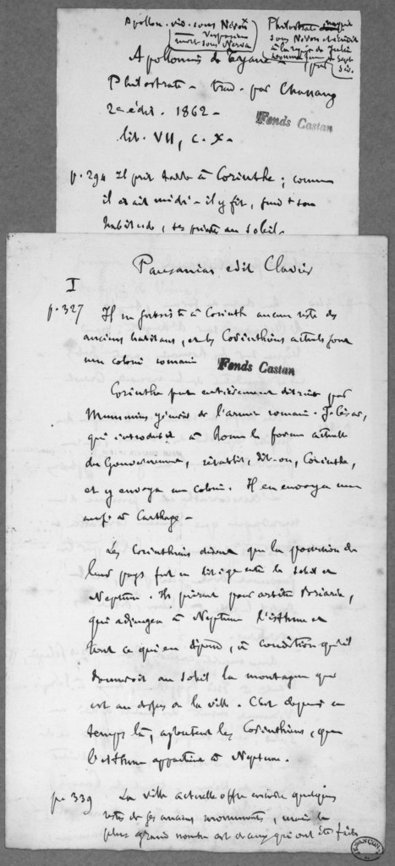 Apollon. viv. sous Néron
Vespasien
mort sous Nerva
Philostrate
sous Néron
à la
Sept
Sév.
Apollonius de Tyane
par
Philostrate - trad. par Chassang
2e édit. 1862 -
lib. VII, c. X -
Fonds Castan
p. 294 Il prit terre à Corinthe ; comme
il était midi - il y fit, suivt son
habitude, ses prières au soleil -
Pausanias edit Clavier
I
p. 327 Il ne subsiste à Corinthe aucun reste des
anciens habitans, et les Corinthiens actuels sont
une colonie romaine
Fonds Castan
Corinthe fut entièrement détruite par
Mummius général de l'armée romaine. J. César,
qui introduisit à Rome la forme actuelle
du Gouvernement, rétablit, dit-on, Corinthe,
et y envoya une colonie. Il en envoya une
aussi à Carthage -
Les Corinthiens disent que la possession de
leur pays fut en litige entre le Soleil et
Neptune. Ils prirent pour arbitre Briarée,
qui adjugea à Neptune l'isthme et
tout ce qui en dépend, à condition qu'il
donneroit au soleil la montagne qui
est au dessus de la ville. C'est depuis ce
temps là, ajoutent les Corinthiens, que
l'isthme appartient à Neptune.
p. 339 La ville actuelle offre encore quelques
restes de ses anciens monuments, mais le
plus grand nombre est de ceux qui ont été faits